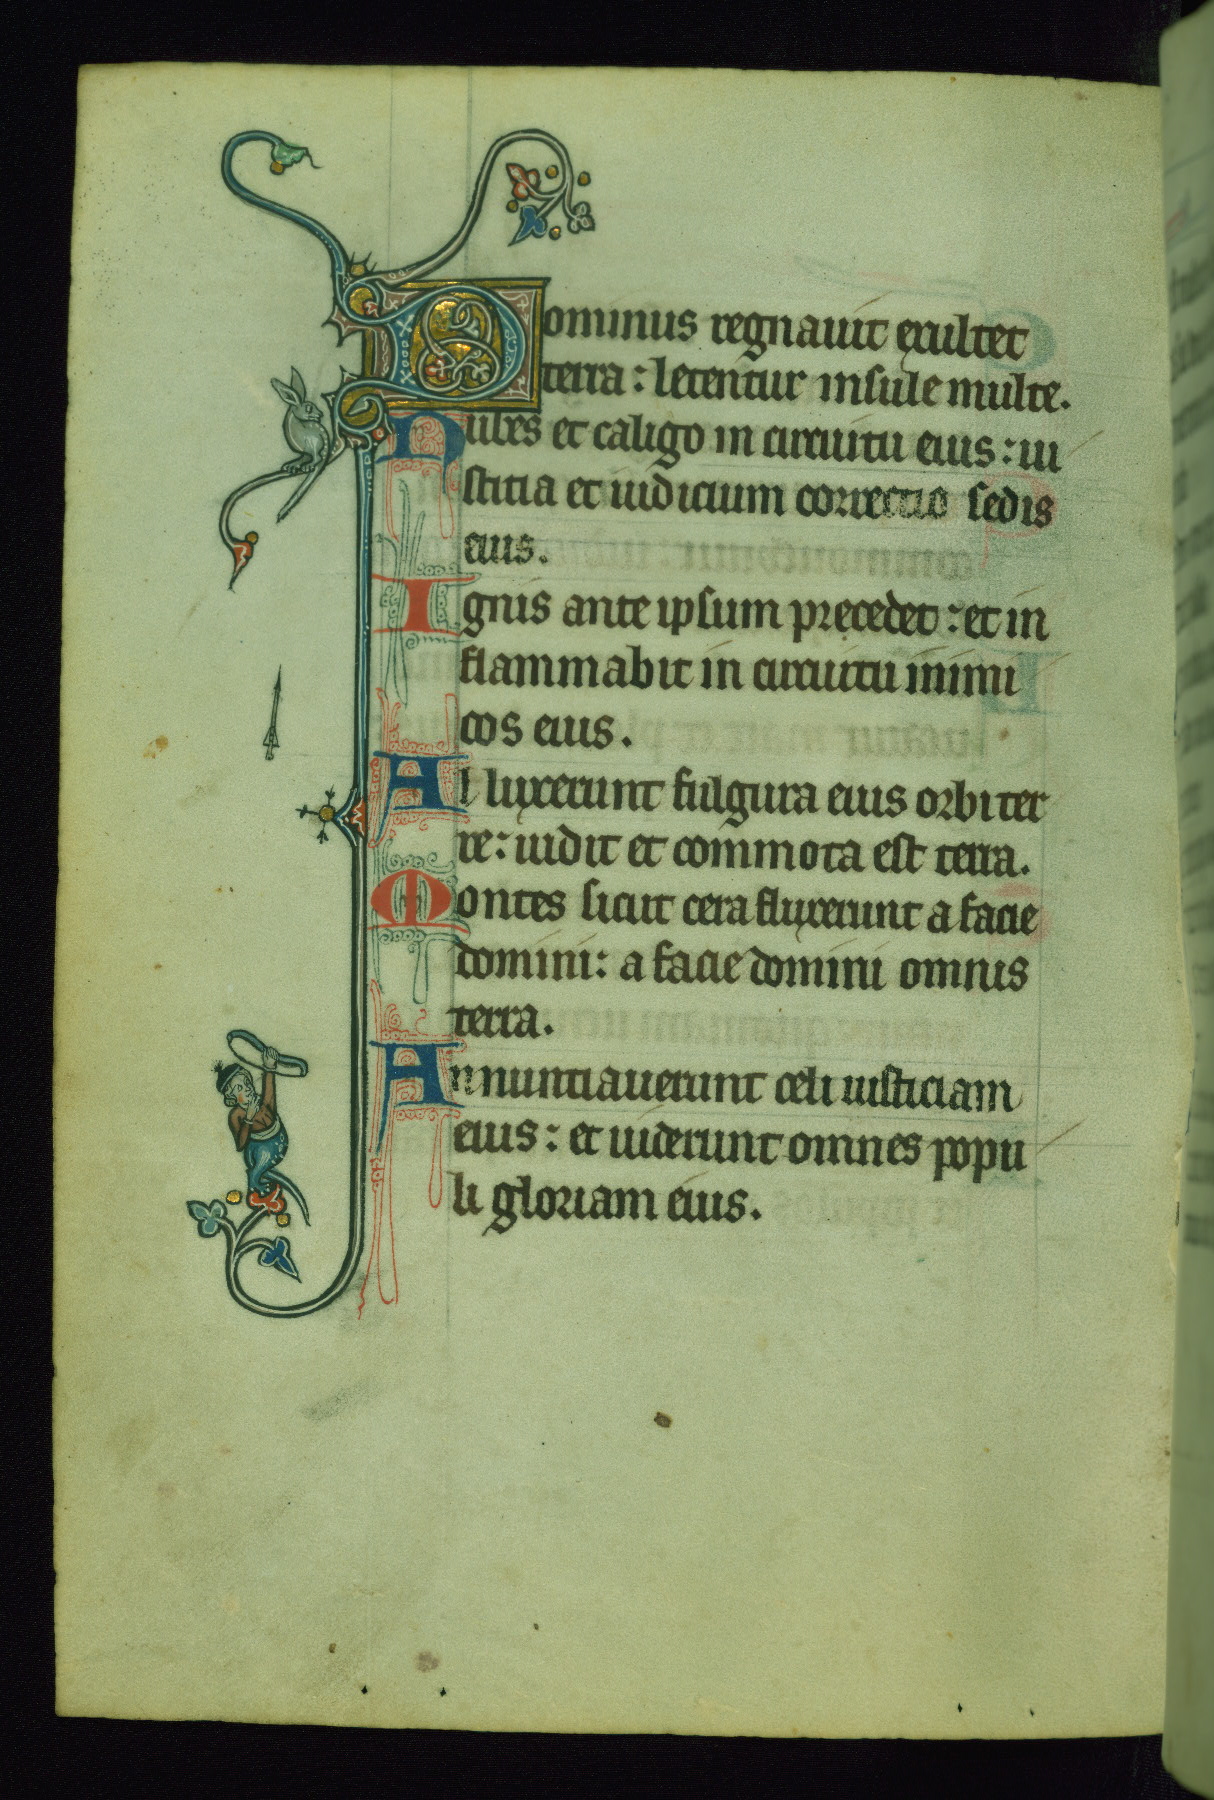 Dominus regnauit exultet
terra : letentur insule multe.
Nubes et caligo in circuitu eius : iu
stitia et iudicium correctio sedis
eius.
Ignis ante ipsum precedet : et in
flammabit in circuitu inimi
cos eius.
Alluxerunt fulgura eius orbi ter
re : uidit et commota est terra.
Montes sicut cera fluxerunt a facie
domini : a facie domini omnis
terra.
Annuntiauerunt celi iusticiam
eius : et uiderunt omnes popu
li gloriam eius.